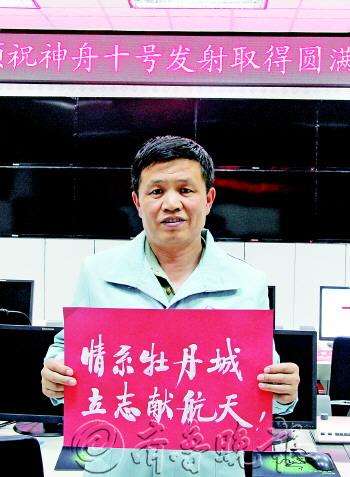 祝神舟十号发射取得圆满
情系牡丹城
立志献航天!
齐鲁晚报